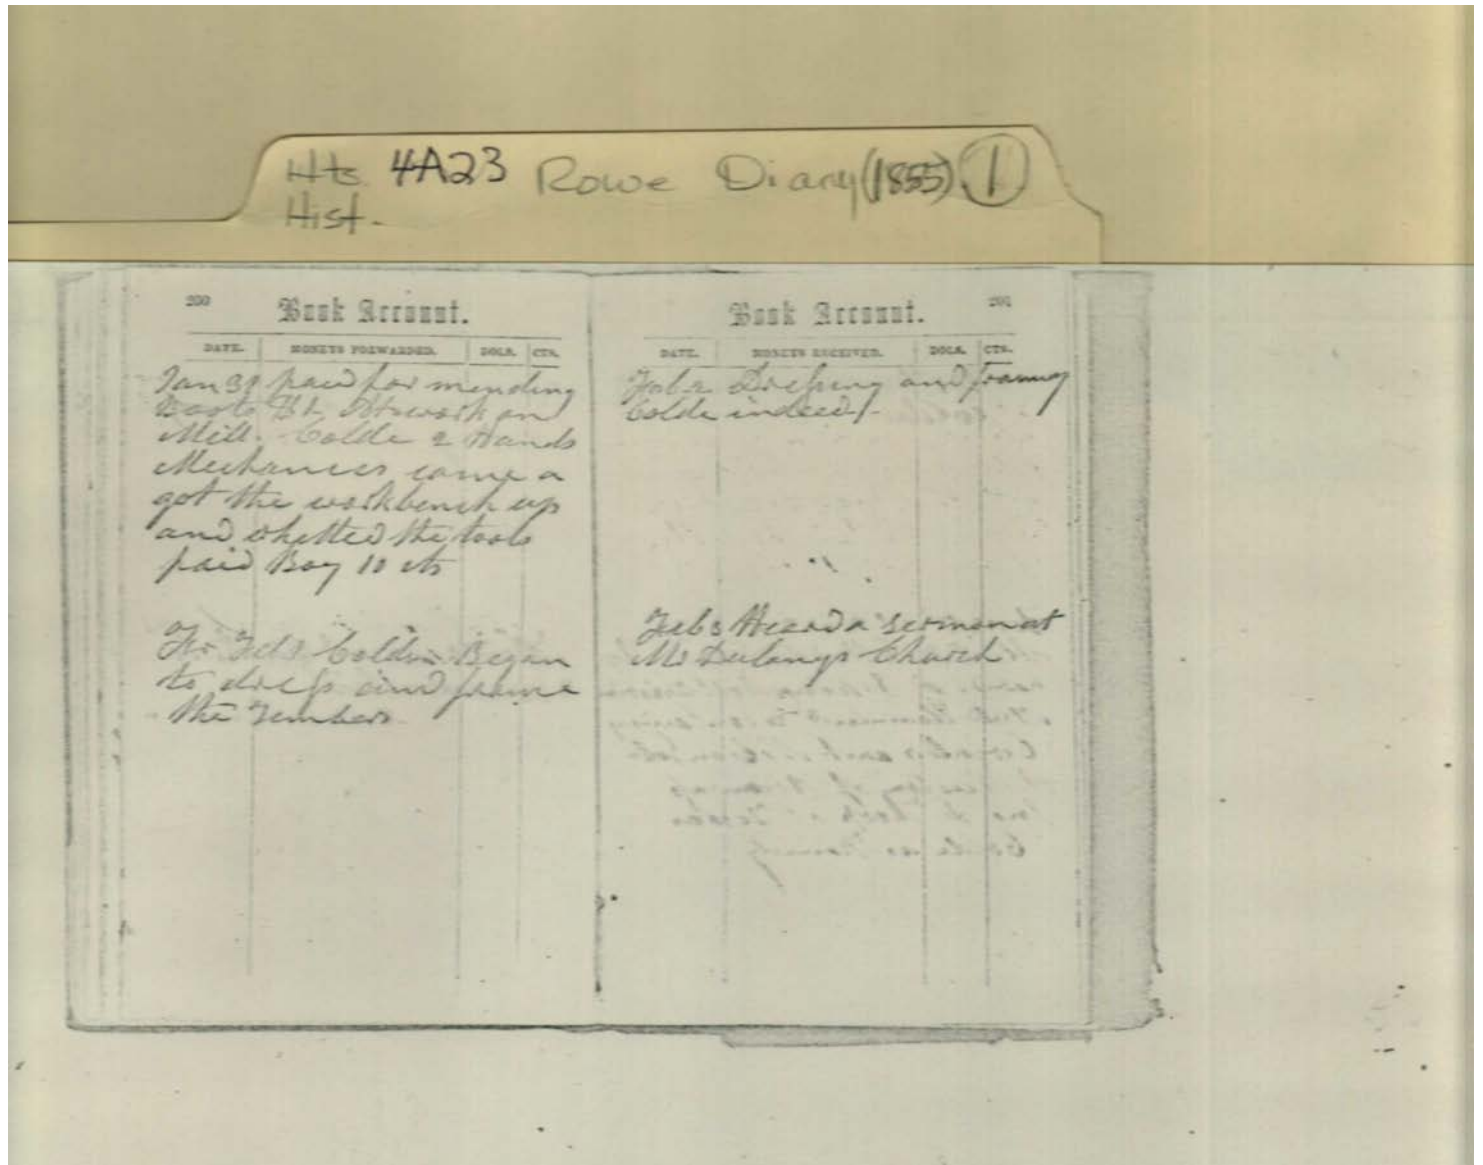 Hts. 4A23 Rowe Diary (1855) 1
Hist.
200 Book Account.
DATE. MONEYS FORWARDED. DOLS. CTS.
Jan 31 paid for mending
Boots $1. at work on
Mill. Colde 2 Hands
Mechanics came a
got the workbench up
and whetted the tools
paid Boy 10 cts
Feb 1 Colde Began
to dress and frame
the Tembers
Book Account. 201
DATE. MONEYS RECEIVED. DOLS. CTS.
Feb 2 Dressing and framing
Colde indeed
Feb 3 Heard a sermon at
Mr Dulanys Church